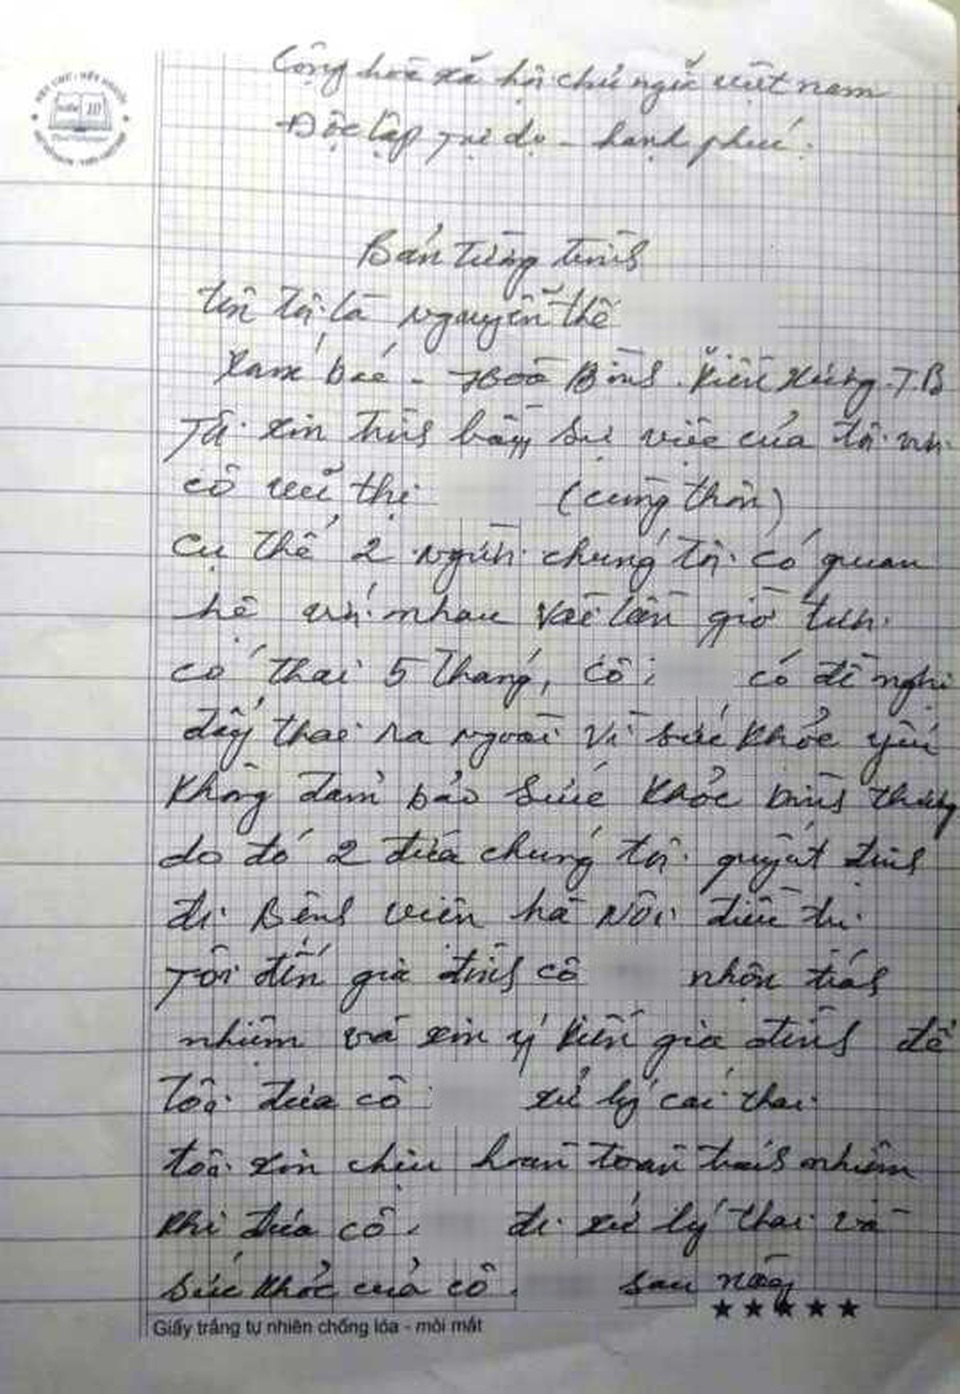 Cộng hoà xã hội chủ nghĩa việt nam
Độc lập Tự do - hạnh phúc.
Bản tường trình
tên tôi là Nguyễn Thế
Nam - Hoà Bình. Kiến Xương. TB
Tôi xin trình bày sự việc của tôi với
cô vũ thị (cùng thôn)
cụ thể 2 người chúng tôi có quan
hệ với nhau vài lần giờ
có thai 5 tháng, cô có đề nghị
đẩy thai ra ngoài vì sức khỏe yếu
không đảm bảo sức khỏe bình thường
do đó 2 đứa chúng tôi quyết định
đi Bệnh viện hà Nội điều trị
Tôi đến gia đình cô nhận trách
nhiệm và xin ý kiến gia đình để
tôi đưa cô xử lý cái thai
tôi xin chịu hoàn toàn trách nhiệm
khi đưa cô đi xử lý thai và
sức khỏe của cô sau này
★★★★★
Giấy trắng tự nhiên chống lóa - mỏi mắt